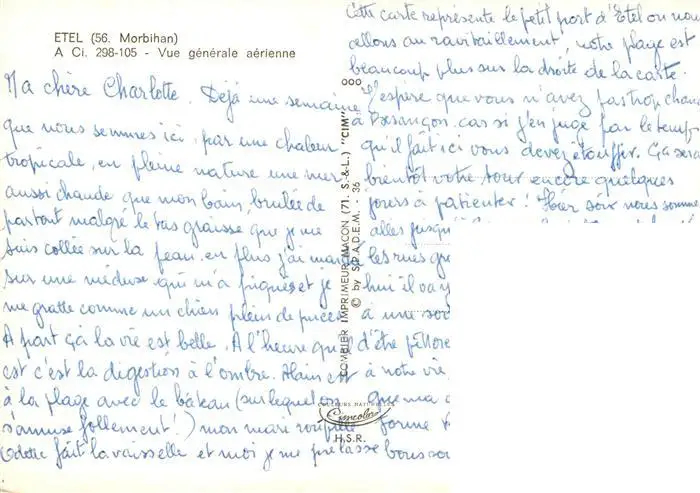 ETEL (56. Morbihan)
A Ci. 298-105 - Vue générale aérienne
Ma chère Charlotte. Déjà une semaine
que nous sommes ici, par une chaleur
tropicale, en pleine nature une mer
aussi chaude que mon bain, brulée de
partout malgré le gras graisse que je me
suis collée sur la peau, en plus j'ai marché
sur une méduse qui m'a piquée et je
me gratte comme un chien plein de puces
A part ça la vie est belle. A l'heure qu'il
est c'est la digestion à l'ombre. Alain est
à la plage avec le bateau (sur lequel on
s'amuse follement!) mon mari roupille
Odette fait la vaisselle et moi je me prélasse
Cette carte représente le petit port d'Etel ou nous
allons au ravitaillement, notre plage est
beaucoup plus sur la droite de la carte.
J'espère que vous n'avez pas trop chaud
à Besançon car si j'en juge par le temps
qu'il fait ici vous devez étouffer. Ça sera
bientôt votre tour encore quelques
jours à patienter! Hier soir nous sommes
allés jusqu'
les rues
hui il va y
à une
d'être
à notre
Que ma
forme
bons
OOO
COMBIER IMPRIMEUR MACON (71. S.-&-L.) "CIM"
© by S.P.A.D.E.M. - 36
COULEURS NATURELLES
Cimcolor
H.S.R.